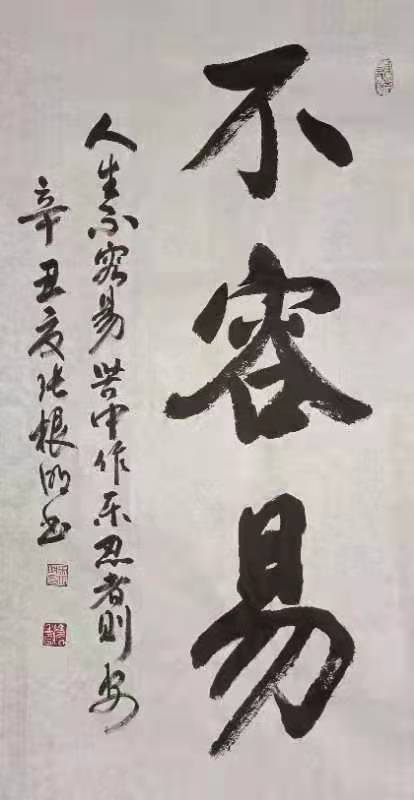 不容易
人生不容易苦中作乐忍者则安
辛丑夏张根明书